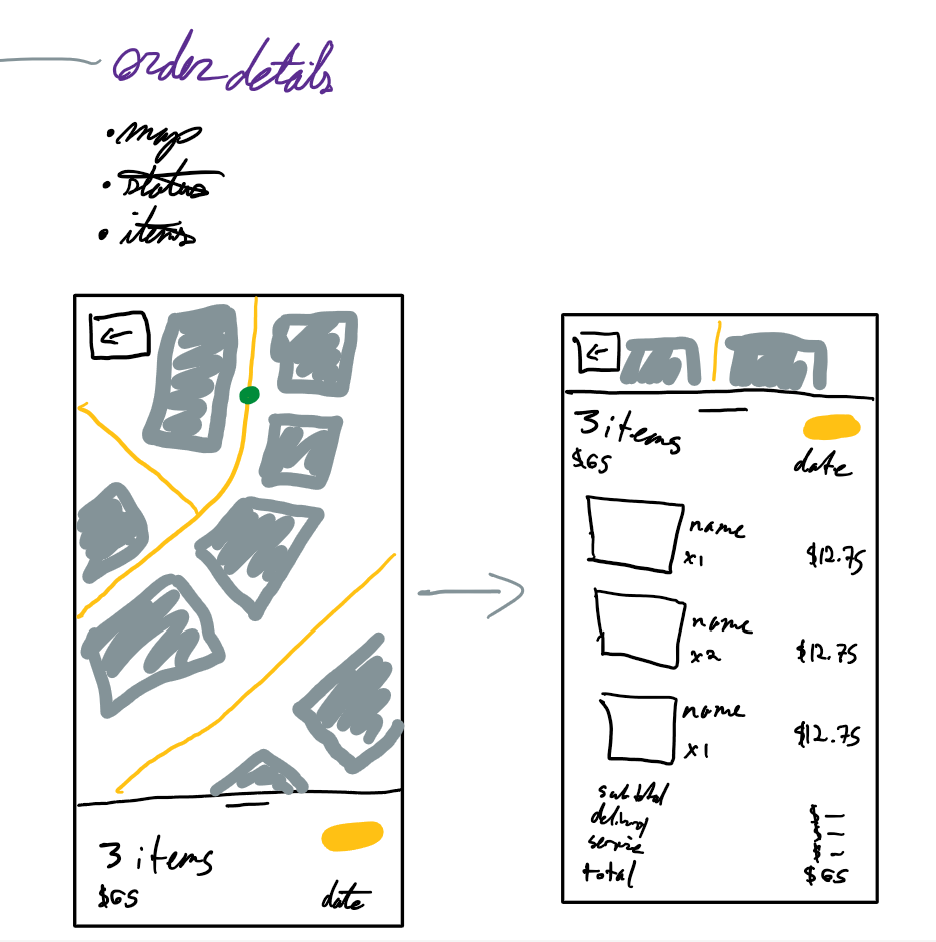 order details
• map
• status
• items
3 items
$65
date
3 items
$65
date
name
x1
$12.75
name
x2
$12.75
name
x1
$12.75
subtotal
delivery
$ —
service
$ —
$ —
total
$65